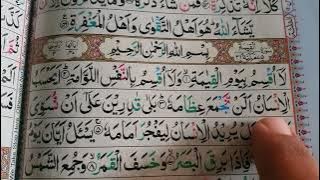 تَذْكِرَةٌ فَمَنْ شَآءَ ذَكَرَهٗ
يَّشَآءَ اللّٰهُ هُوَ اَهْلُ التَّقْوٰى وَاَهْلُ الْمَغْفِرَةِ
بِسْمِ اللّٰهِ الرَّحْمٰنِ الرَّحِيْمِ
لَآ اُقْسِمُ بِيَوْمِ الْقِيٰمَةِ وَلَآ اُقْسِمُ بِالنَّفْسِ اللَّوَّامَةِ اَيَحْسَبُ
الْاِنْسَانُ اَلَّنْ نَّجْمَعَ عِظَامَهٗ بَلٰى قٰدِرِيْنَ عَلٰٓى اَنْ نُّسَوِّيَ
بَلْ يُرِيْدُ الْاِنْسَانُ لِيَفْجُرَ اَمَامَهٗ يَسْـَٔلُ اَيَّانَ يَوْمُ
فَاِذَا بَرِقَ الْبَصَرُ وَخَسَفَ الْقَمَرُ وَجُمِعَ الشَّمْسُ